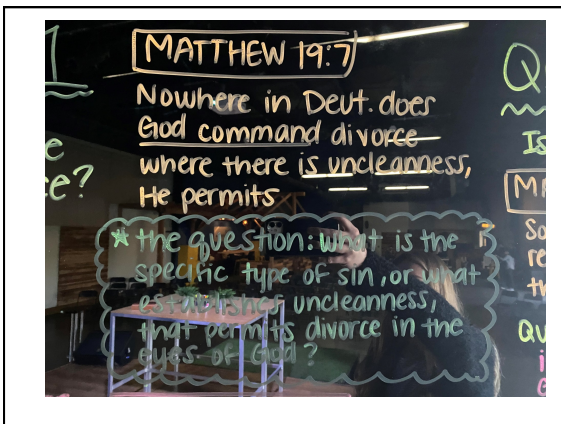 MATTHEW 19:7
Nowhere in Deut. does
God command divorce
where there is uncleanness,
He permits
* the question: what is the
specific type of sin, or what
establishes uncleanness,
that permits divorce in the
eyes of God?
e
ce?
Is
So
re
th
QU
i